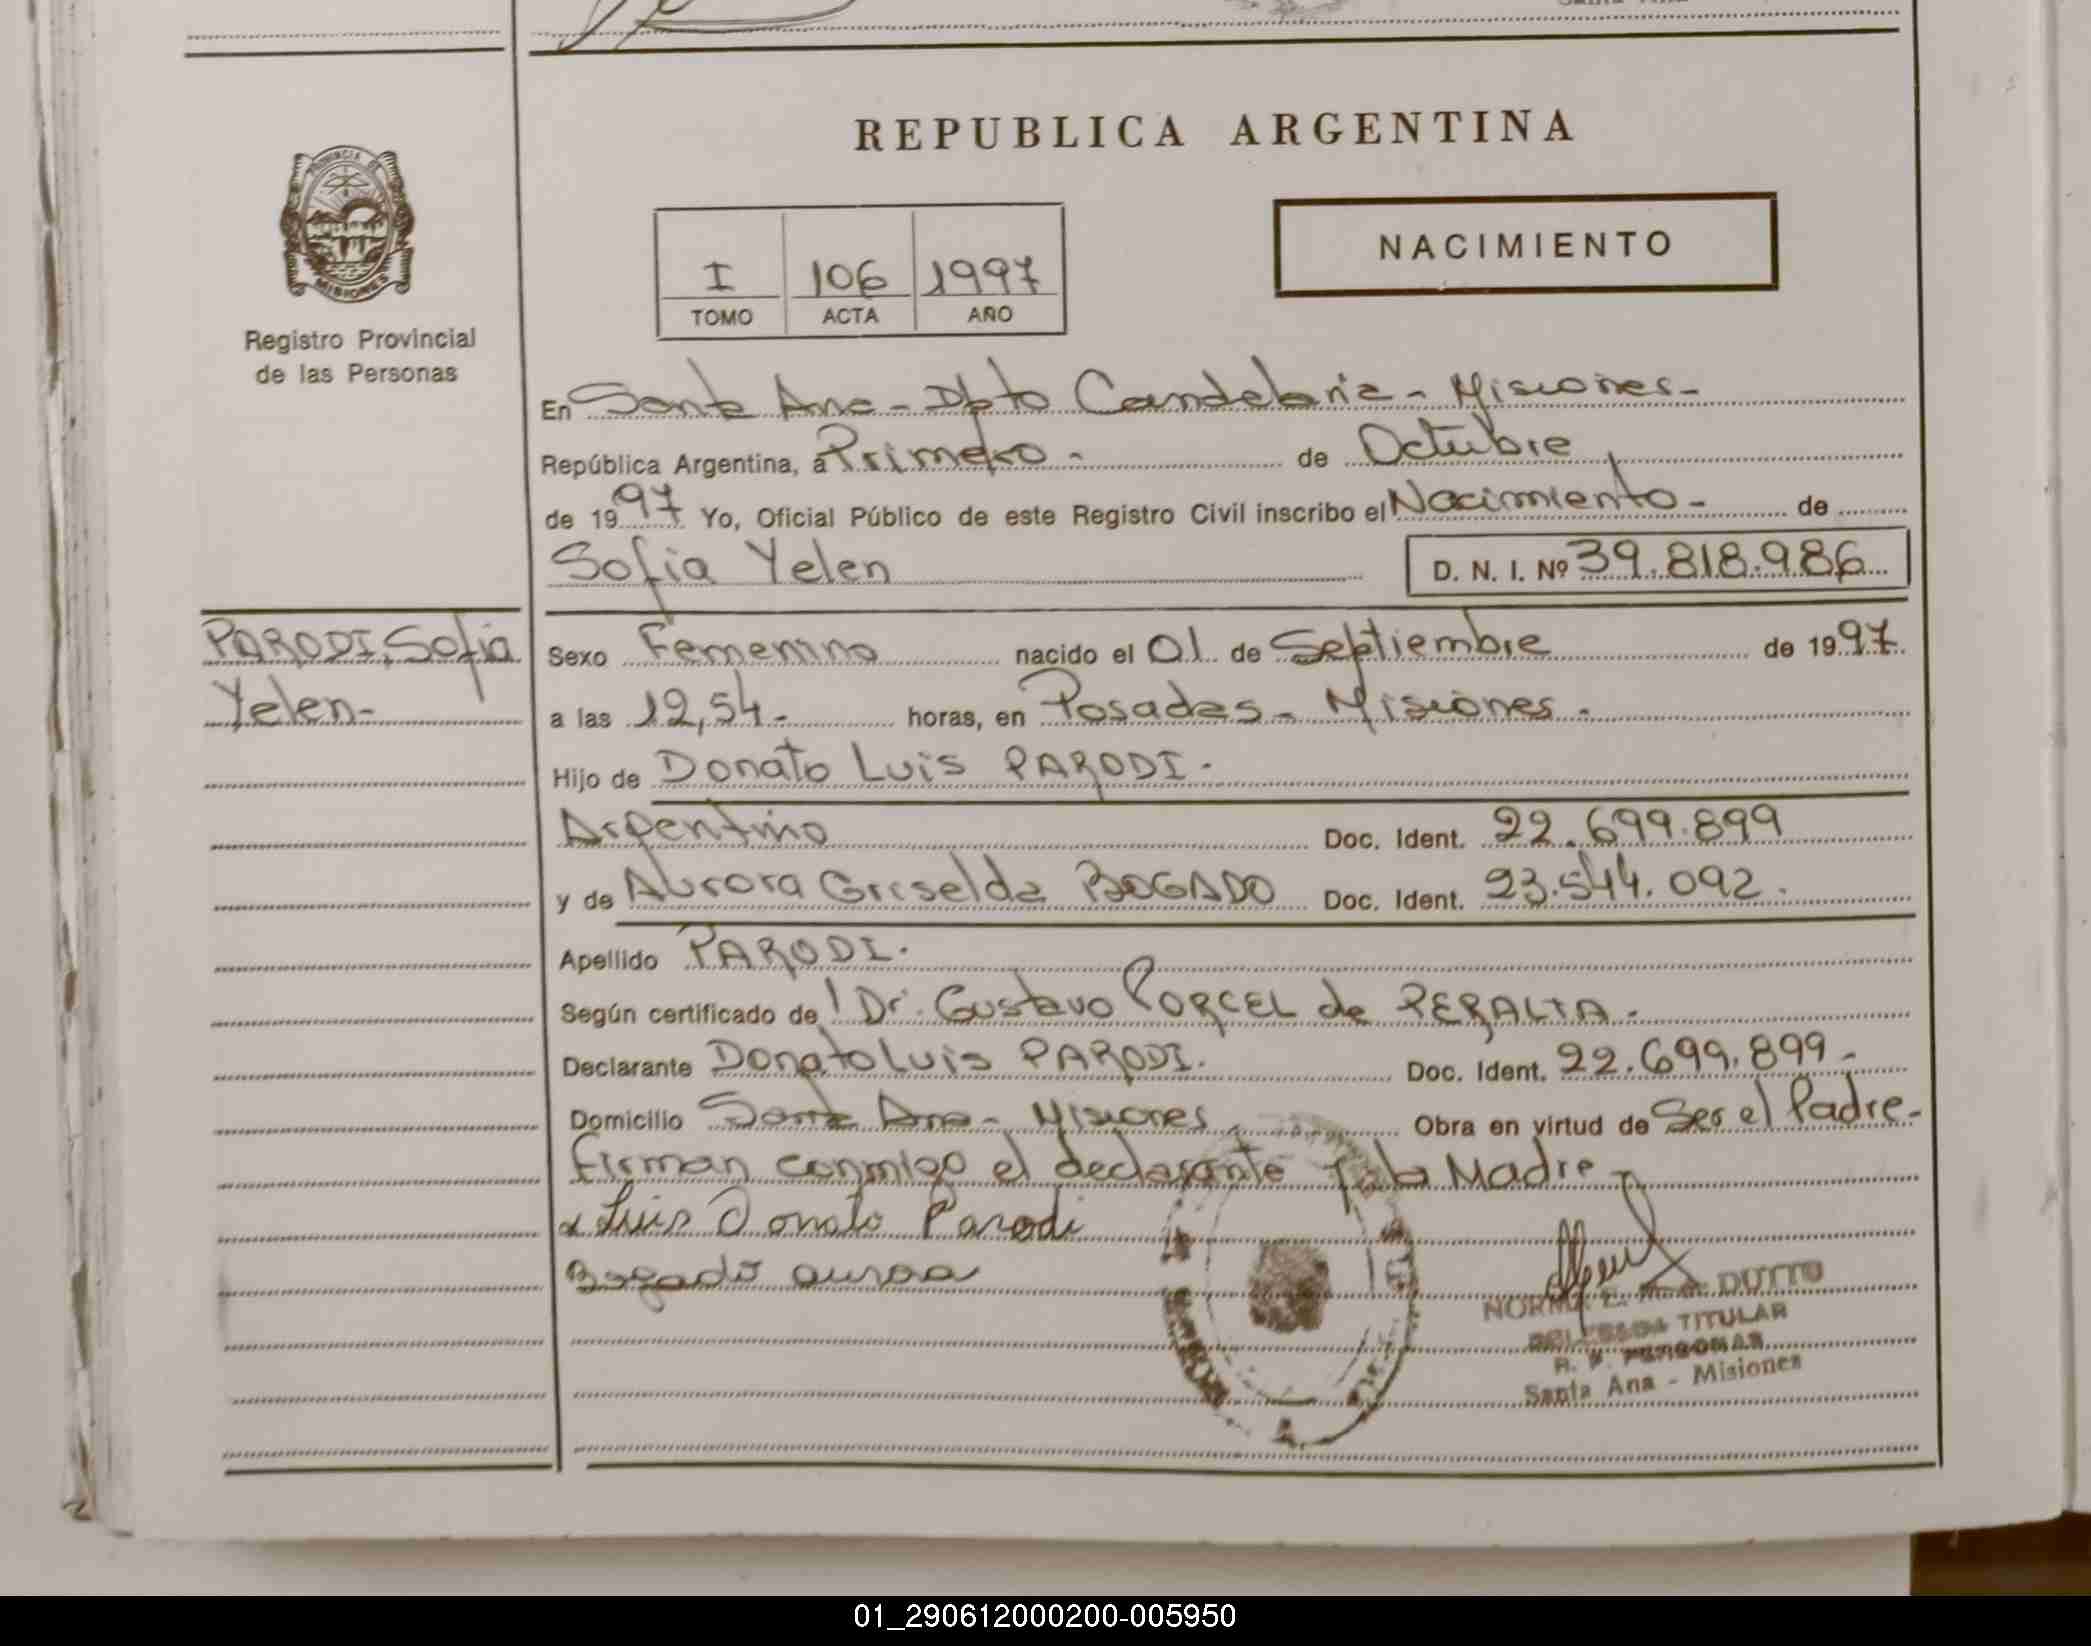 REPUBLICA ARGENTINA
PROVINCIA DE
MISIONES
Registro Provincial
de las Personas
I 106 1997
TOMO ACTA AÑO
NACIMIENTO
En Santa Ana - Dpto Candelaria - Misiones -
República Argentina, a Primero - de Octubre
de 1997 Yo, Oficial Público de este Registro Civil inscribo el Nacimiento - de
Sofia Yelen D. N. I. Nº 39.818.986
PARODI, Sofia
Yelen -
Sexo Femenino nacido el 01 de Septiembre de 1997
a las 12,54 - horas, en Posadas - Misiones -
Hijo de Donato Luis PARODI -
Argentino Doc. Ident. 22.699.899
y de Aurora Griselda BOGADO Doc. Ident. 23.544.092.
Apellido PARODI.
Según certificado de Dr. Gustavo PORCEL de PERALTA -
Declarante Donato Luis PARODI. Doc. Ident. 22.699.899 -
Domicilio Santa Ana - Misiones Obra en virtud de Ser el Padre -
Firman conmigo el declarante y la Madre -
Luis Donato Parodi
Bogado aurora
NORMA E. DUTTO
DELEGADA TITULAR
R. P. PERSONAS
Santa Ana - Misiones
01_290612000200-005950